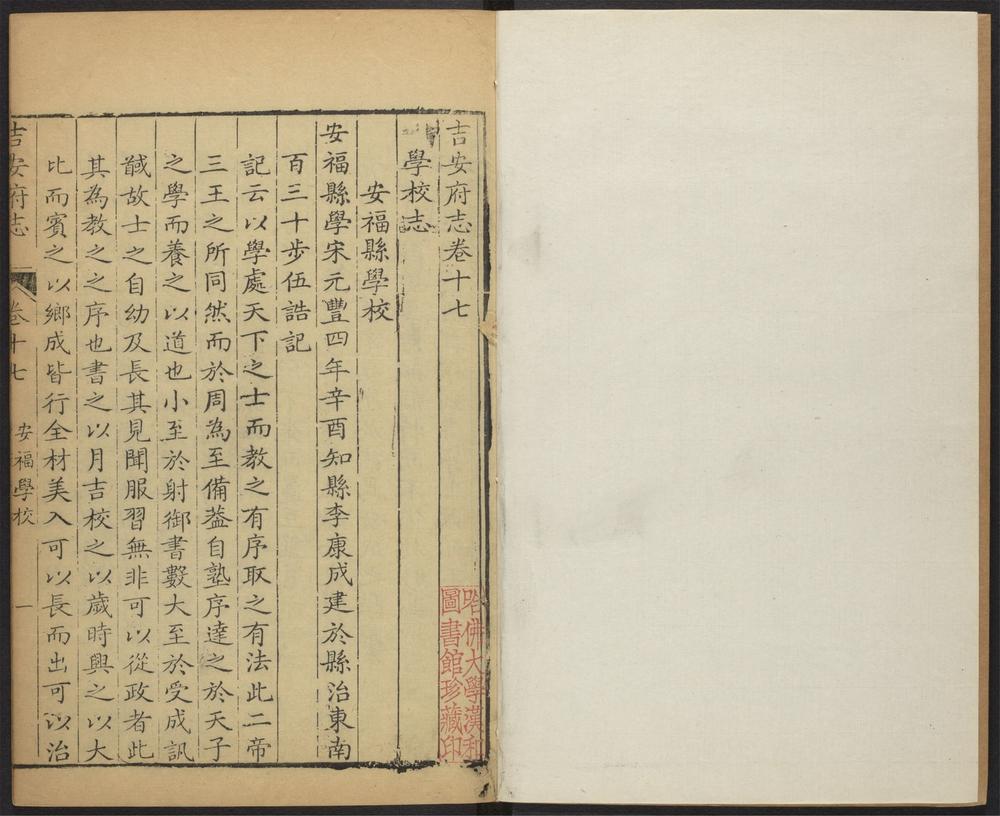 吉安府志卷十七
學校志
安福縣學校
安福縣學宋元豐四年辛酉知縣李康成建於縣治東南
百三十步伍誥記
記云以學處天下之士而教之有序取之有法此二帝
三王之所同然而於周為至備葢自塾序達之於天子
之學而養之以道也小至於射御書數大至於受成訊
馘故士之自幼及長其見聞服習無非可以從政者此
其為教之之序也書之以月吉校之以歲時興之以大
比而賓之以鄉成皆行全材美入可以長而出可以治
吉安府志
卷十七
安福學校
一
哈佛大學漢和
圖書館珍藏印